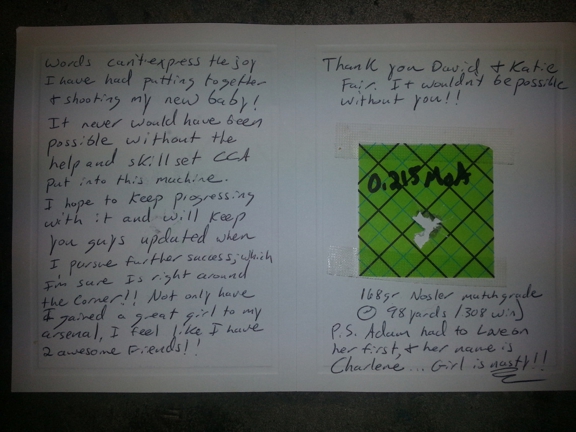 Words can't express the joy
I have had putting together
& shooting my new baby!
It never would have been
possible without the
help and skill set CCA
put into this machine.
I hope to keep progressing
with it and will keep
you guys updated when
I pursue further success, which
I'm sure Is right around
the corner!! Not only have
I gained a great girl to my
arsenal, I feel like I have
2 awesome Friends!!
Thank you David & Katie
Fair. It wouldn't be possible
without you!!
0.215 MOA
168gr Nosler matchgrade
@ 98yards /308 win
P.S. Adam had to Love on
her first, & her name is
Charlene... Girl is nasty!!